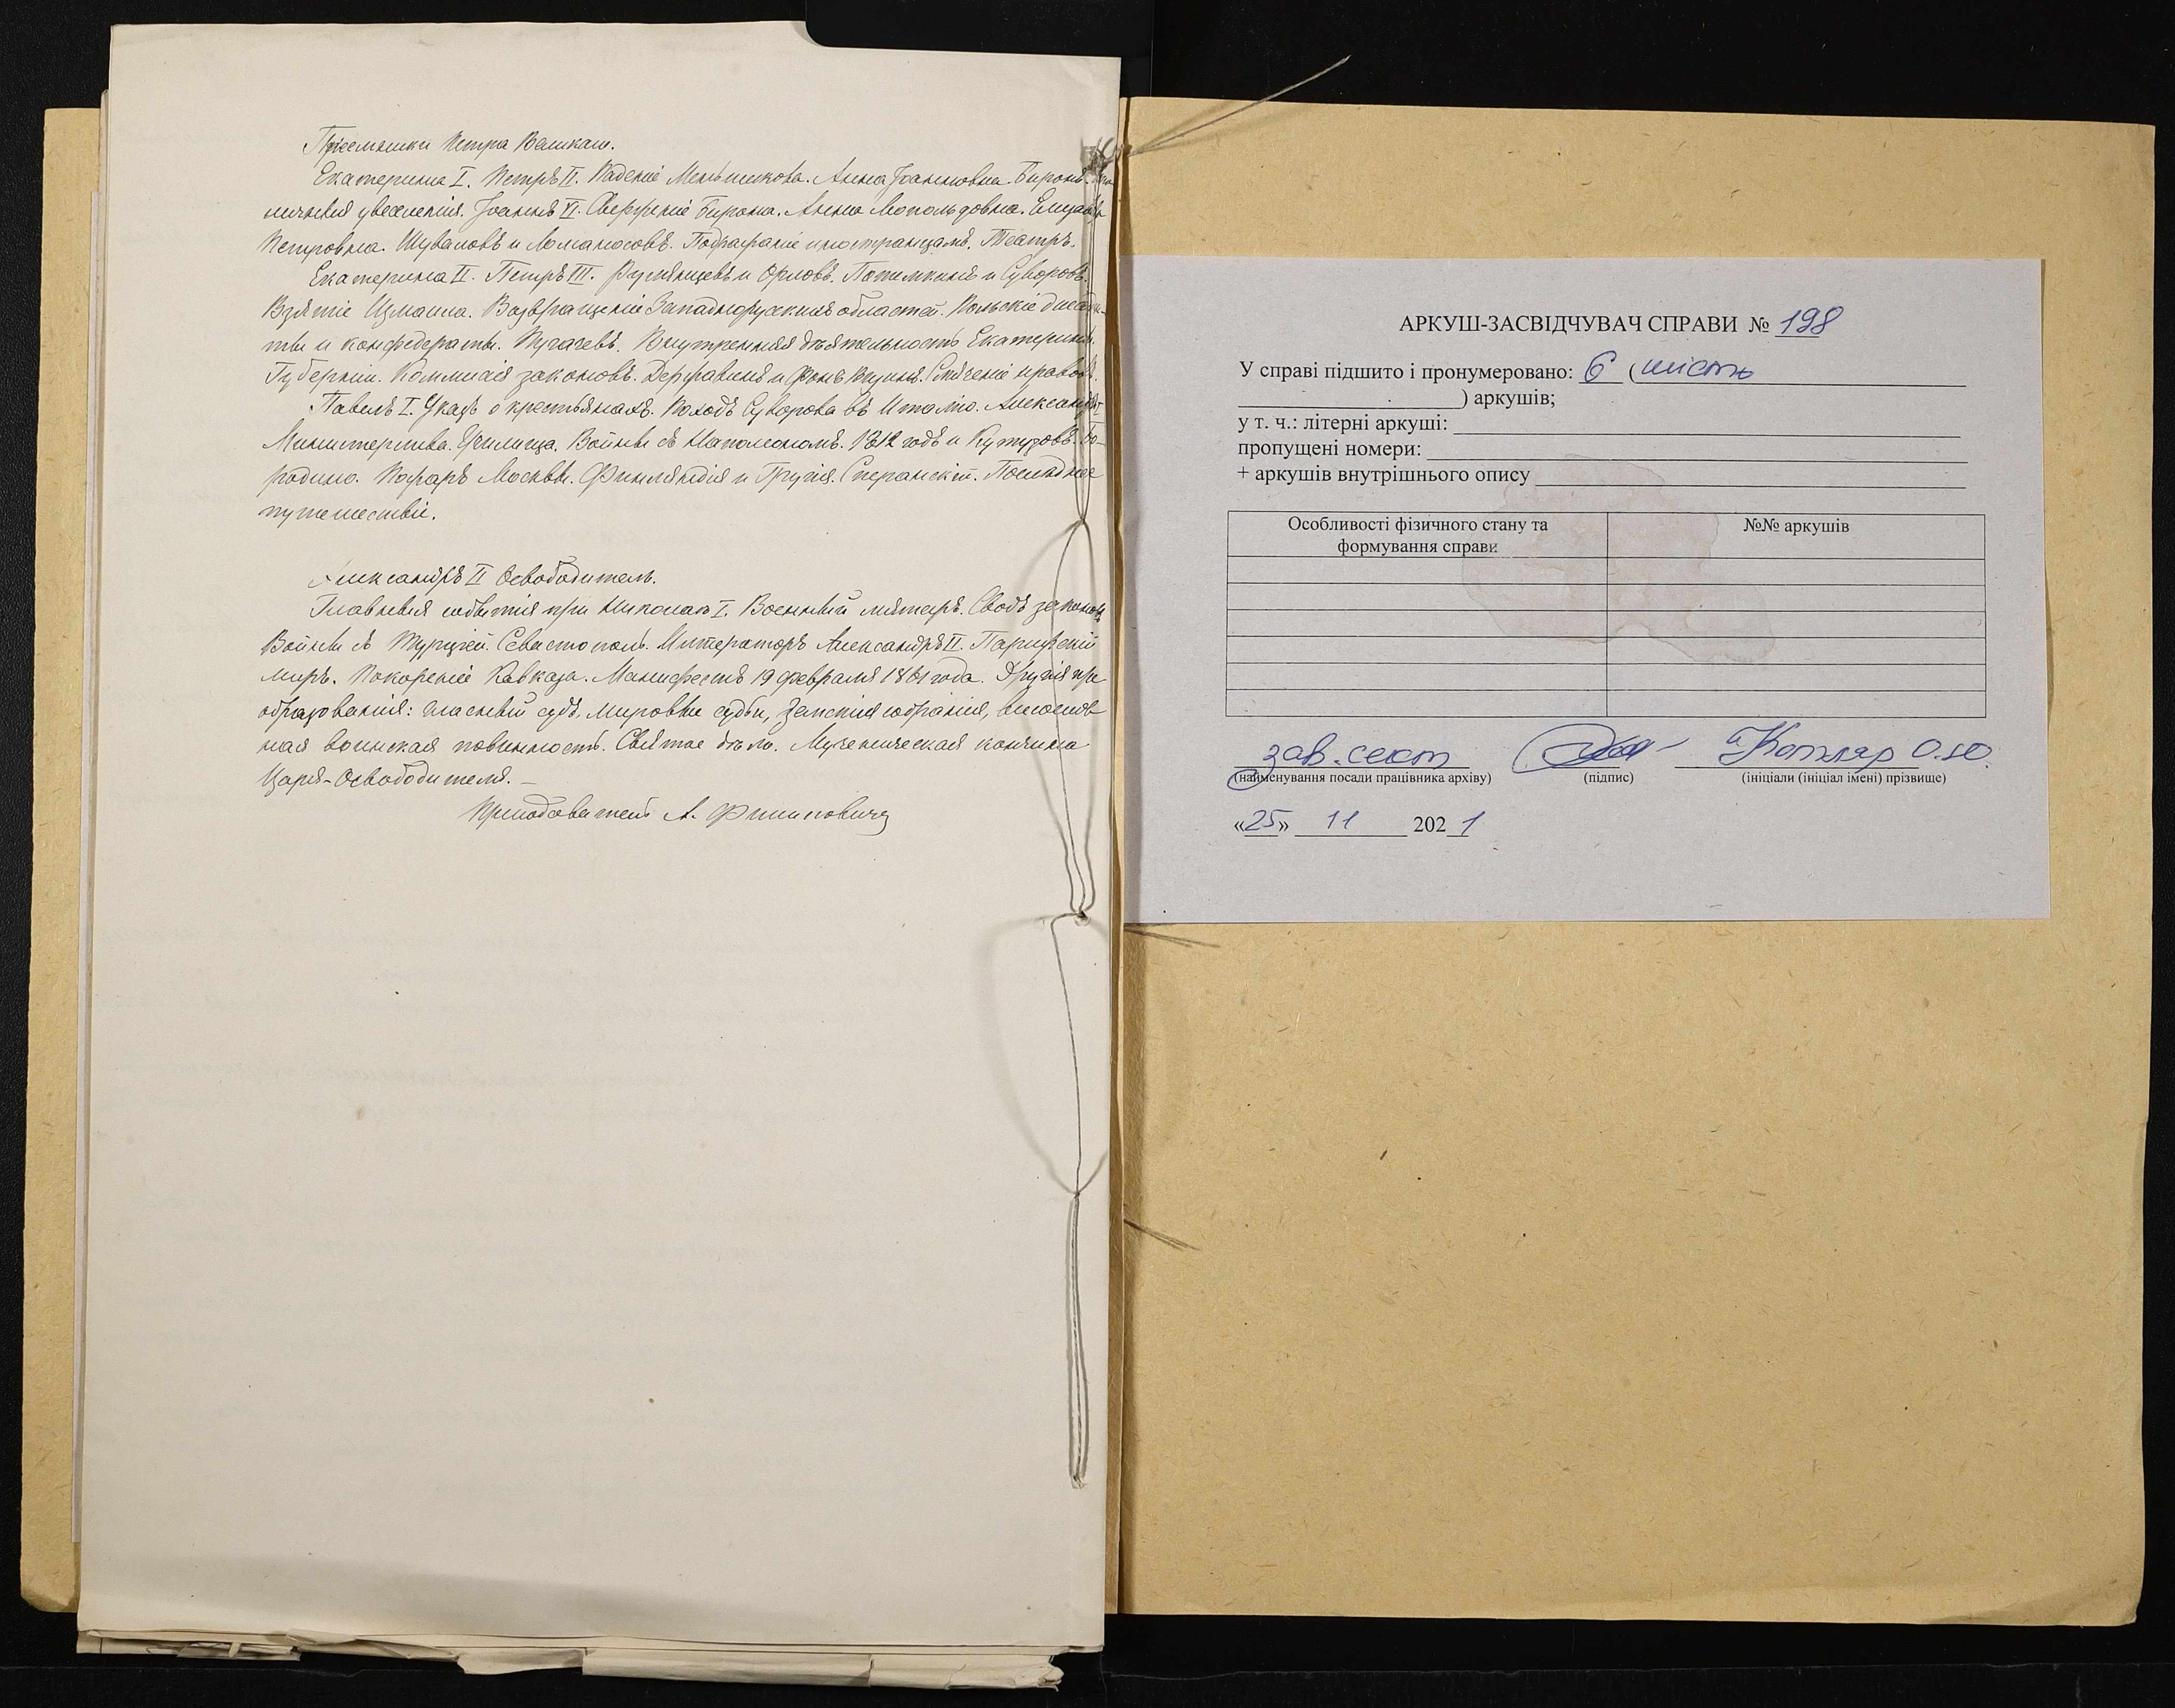 Преемники Петра Великаго.
Екатерина I. Петръ II. Паденіе Меньшикова. Анна Іоанновна. Биронъ.
ничныя увеселенія. Іоаннъ VI. Сверженіе Бирона. Анна Леопольдовна. Елизав
Петровна. Шуваловъ и Ломаносовъ. Подражаніе иностранцамъ. Театръ.
Екатерина II. Петръ III. Румянцевъ и Орловъ. Потемкинъ и Суворовъ.
Взятіе Измаила. Возвращеніе Западнорусскихъ областей. Польскіе диссиден-
ты и конфедераты. Пугачевъ. Внутренняя дѣятельность Екатерины.
Губерніи. Коммисія законовъ. Державинъ и Фонъ Визинъ. Смягченіе нравовъ.
Павелъ I. Указъ о крестьянахъ. Походъ Суворова въ Италію. Александръ I
Министерства. Училища. Войны съ Наполеономъ. 1812 годъ и Кутузовъ. Бо-
родино. Пожаръ Москвы. Финляндія и Грузія. Сперанскій. Последнее
путешествіе.
Александръ II Освободитель.
Главныя событія при Николаѣ I. Военный мятежъ. Сводъ законовъ
Войны съ Турціей. Севастополь. Императоръ Александръ II. Парижскій
миръ. Покореніе Кавказа. Манифестъ 19 февраля 1861 года. Другія пре
образованія: гласный судъ, мировые судьи, земскія собранія, всесослов
ная воинская повинность. Святое дѣло. Мученическая кончина
Царя-Освободителя. —
Преподаватель А. Филиповичъ
АРКУШ-ЗАСВІДЧУВАЧ СПРАВИ № 198
У справі підшито і пронумеровано: 6 (шість
) аркушів;
у т. ч.: літерні аркуші:
пропущені номери:
+ аркушів внутрішнього опису
Особливості фізичного стану та №№ аркушів
формування справи
зав. сект Котляр О.Ю.
(найменування посади працівника архіву) (підпис) (ініціали (ініціал імені) прізвище)
«25» 11 2021